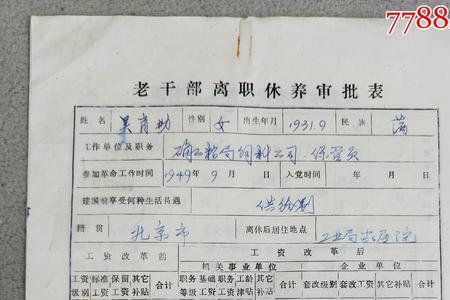 7788
老干部离职休养审批表
姓名 吴育勋 性别 女 出生年月 1931.9 民族 满
工作单位及职务 确山粮局饲料公司.保管员
参加革命工作时间 1949年9月 日 入党时间 年 月 日
建国前享受何种生活待遇 供给制
籍贯 北京市 离休后居住地点 工业局家属院
工资改革前 工资改革后
机关事业单位 企业单位
工资级别 标准工资 保留工资 其它补贴 合计 职务工资 基础工资 工龄津贴 其它补贴 合计 套改级别 套改工资 其它补贴 合计